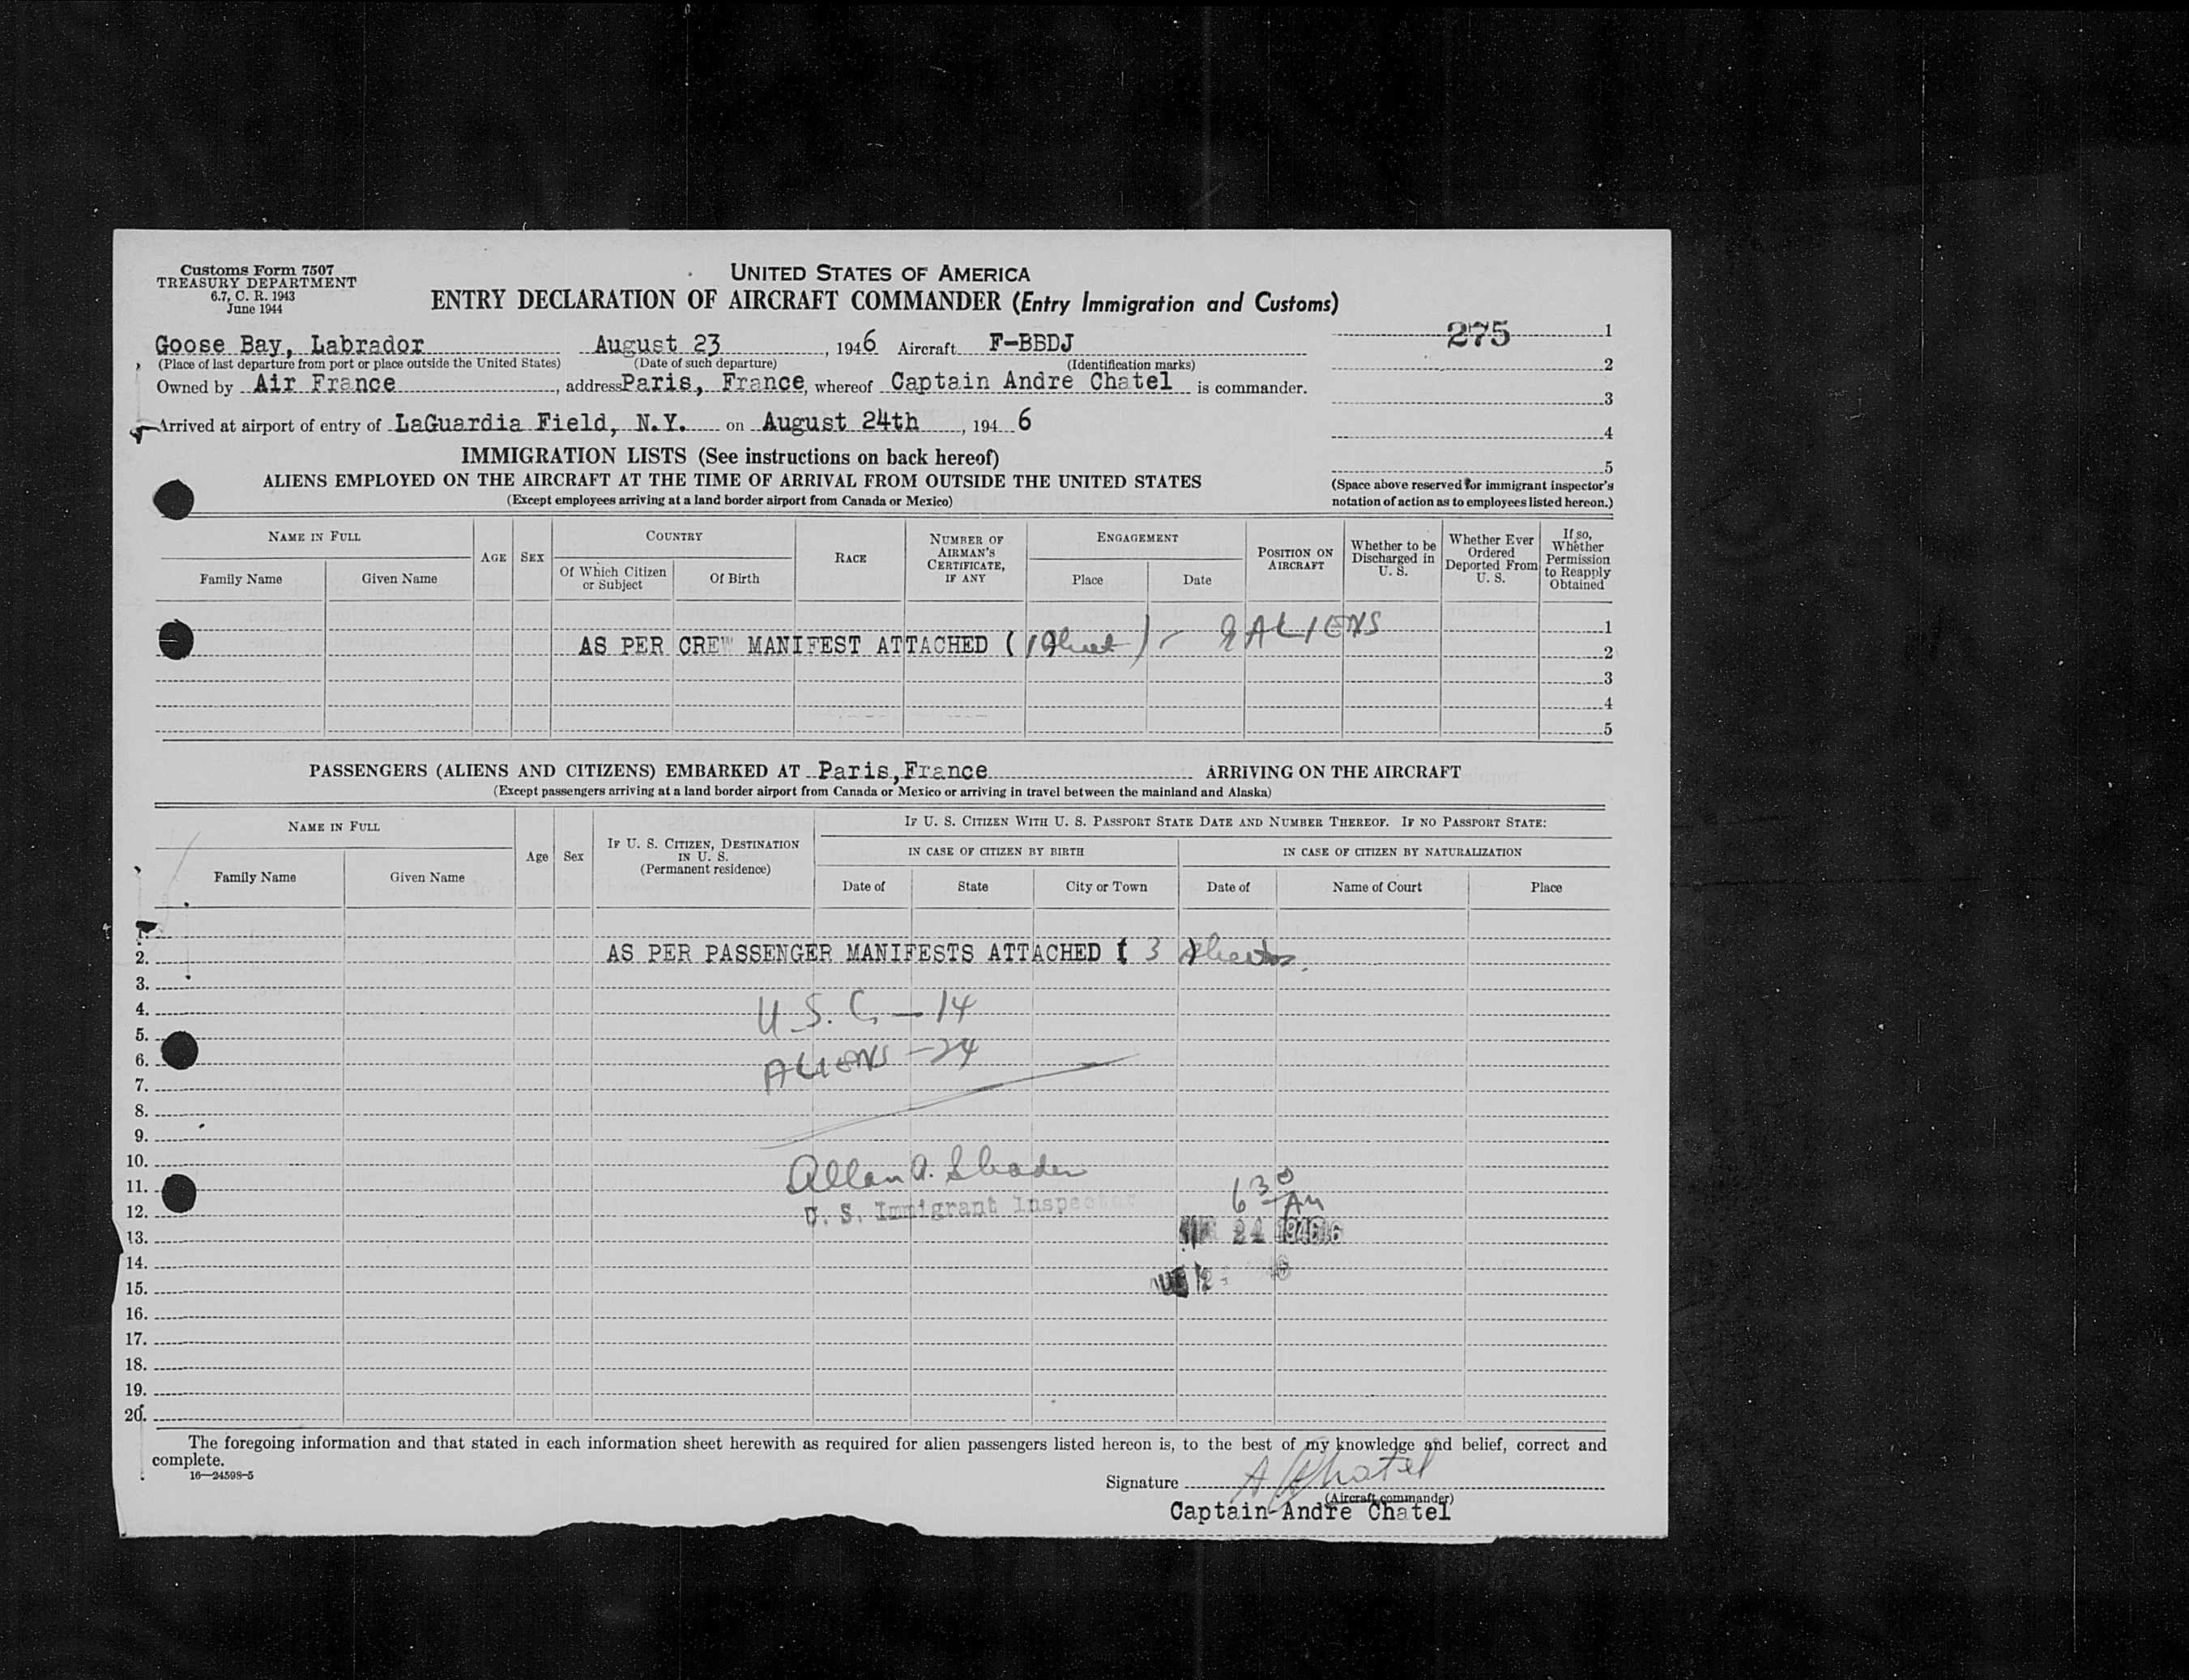 Customs Form 7507
TREASURY DEPARTMENT
6.7, C. R. 1943
June 1944
UNITED STATES OF AMERICA
ENTRY DECLARATION OF AIRCRAFT COMMANDER (Entry Immigration and Customs)
275 1
Goose Bay, Labrador August 23, 1946 Aircraft F-BBDJ
(Place of last departure from port or place outside the United States) (Date of such departure) (Identification marks)
2
Owned by Air France, address Paris, France, whereof Captain Andre Chatel is commander.
3
Arrived at airport of entry of LaGuardia Field, N.Y. on August 24th, 194 6
4
IMMIGRATION LISTS (See instructions on back hereof)
5
ALIENS EMPLOYED ON THE AIRCRAFT AT THE TIME OF ARRIVAL FROM OUTSIDE THE UNITED STATES
(Except employees arriving at a land border airport from Canada or Mexico)
(Space above reserved for immigrant inspector's
notation of action as to employees listed hereon.)
NAME IN FULL
Family Name
Given Name
AGE
SEX
COUNTRY
Of Which Citizen
or Subject
Of Birth
RACE
NUMBER OF
AIRMAN'S
CERTIFICATE,
IF ANY
ENGAGEMENT
Place
Date
POSITION ON
AIRCRAFT
Whether to be
Discharged in
U. S.
Whether Ever
Ordered
Deported From
U. S.
If so,
Whether
Permission
to Reapply
Obtained
1
AS PER CREW MANIFEST ATTACHED (1 Sheet) - ALIENS
2
3
4
5
PASSENGERS (ALIENS AND CITIZENS) EMBARKED AT Paris,France ARRIVING ON THE AIRCRAFT
(Except passengers arriving at a land border airport from Canada or Mexico or arriving in travel between the mainland and Alaska)
NAME IN FULL
Family Name
Given Name
Age
Sex
IF U. S. CITIZEN, DESTINATION
IN U. S.
(Permanent residence)
IF U. S. CITIZEN WITH U. S. PASSPORT STATE DATE AND NUMBER THEREOF. IF NO PASSPORT STATE:
IN CASE OF CITIZEN BY BIRTH
Date of
State
City or Town
IN CASE OF CITIZEN BY NATURALIZATION
Date of
Name of Court
Place
1.
2. AS PER PASSENGER MANIFESTS ATTACHED ( 3 ) sheets.
3.
4. U.S.C. - 14
5.
6. ALIENS - 24
7.
8.
9.
10.
11. Allan A. Shader
12. U. S. Immigrant Inspector 6 30 AM
13. 24 1946
14.
15. AUG
16.
17.
18.
19.
20.
The foregoing information and that stated in each information sheet herewith as required for alien passengers listed hereon is, to the best of my knowledge and belief, correct and
complete.
16—24598-5
Signature A Chatel
(Aircraft commander)
Captain Andre Chatel